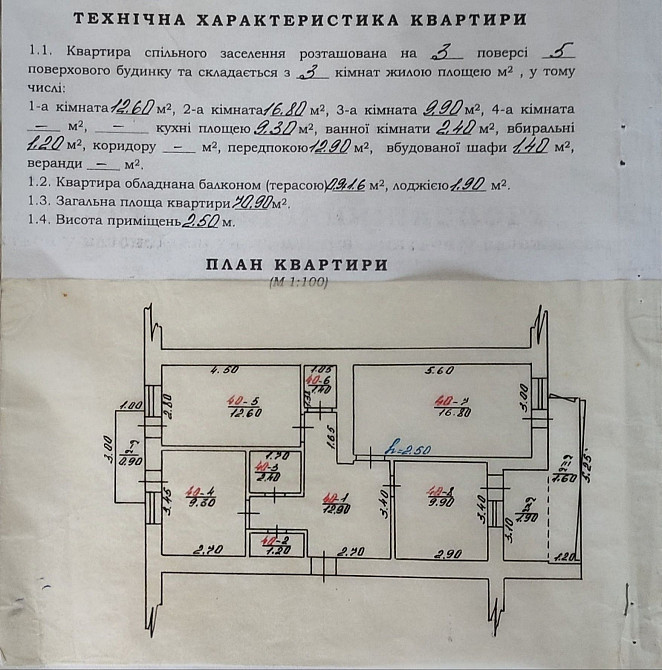 ТЕХНІЧНА ХАРАКТЕРИСТИКА КВАРТИРИ
1.1. Квартира спільного заселення розташована на 3 поверсі 5
поверхового будинку та складається з 3 кімнат жилою площею м², у тому
числі:
1-а кімната 12.60 м², 2-а кімната 16.80 м², 3-а кімната 9.90 м², 4-а кімната
— м², — кухні площею 9.30 м², ванної кімнати 2.40 м², вбиральні
1.20 м², коридору — м², передпокою 12.90 м², вбудованої шафи 1.40 м²,
веранди — м².
1.2. Квартира обладнана балконом (терасою) м², лоджією 1.90 м².
1.3. Загальна площа квартири 70.90 м².
1.4. Висота приміщень 2.50 м.
ПЛАН КВАРТИРИ
(М 1:100)
4.50
1.05
5.60
40-6
1.40
2.80
40-5
12.60
40-7
16.80
3.00
1.00
1.65
h=2.50
3.00
0.90
1.70
40-3
2.40
3.45
40-4
40-1
12.90
3.40
40-8
9.90
3.40
1.60
3.25
1.90
3.10
40-2
1.20
2.70
2.70
2.90
1.20